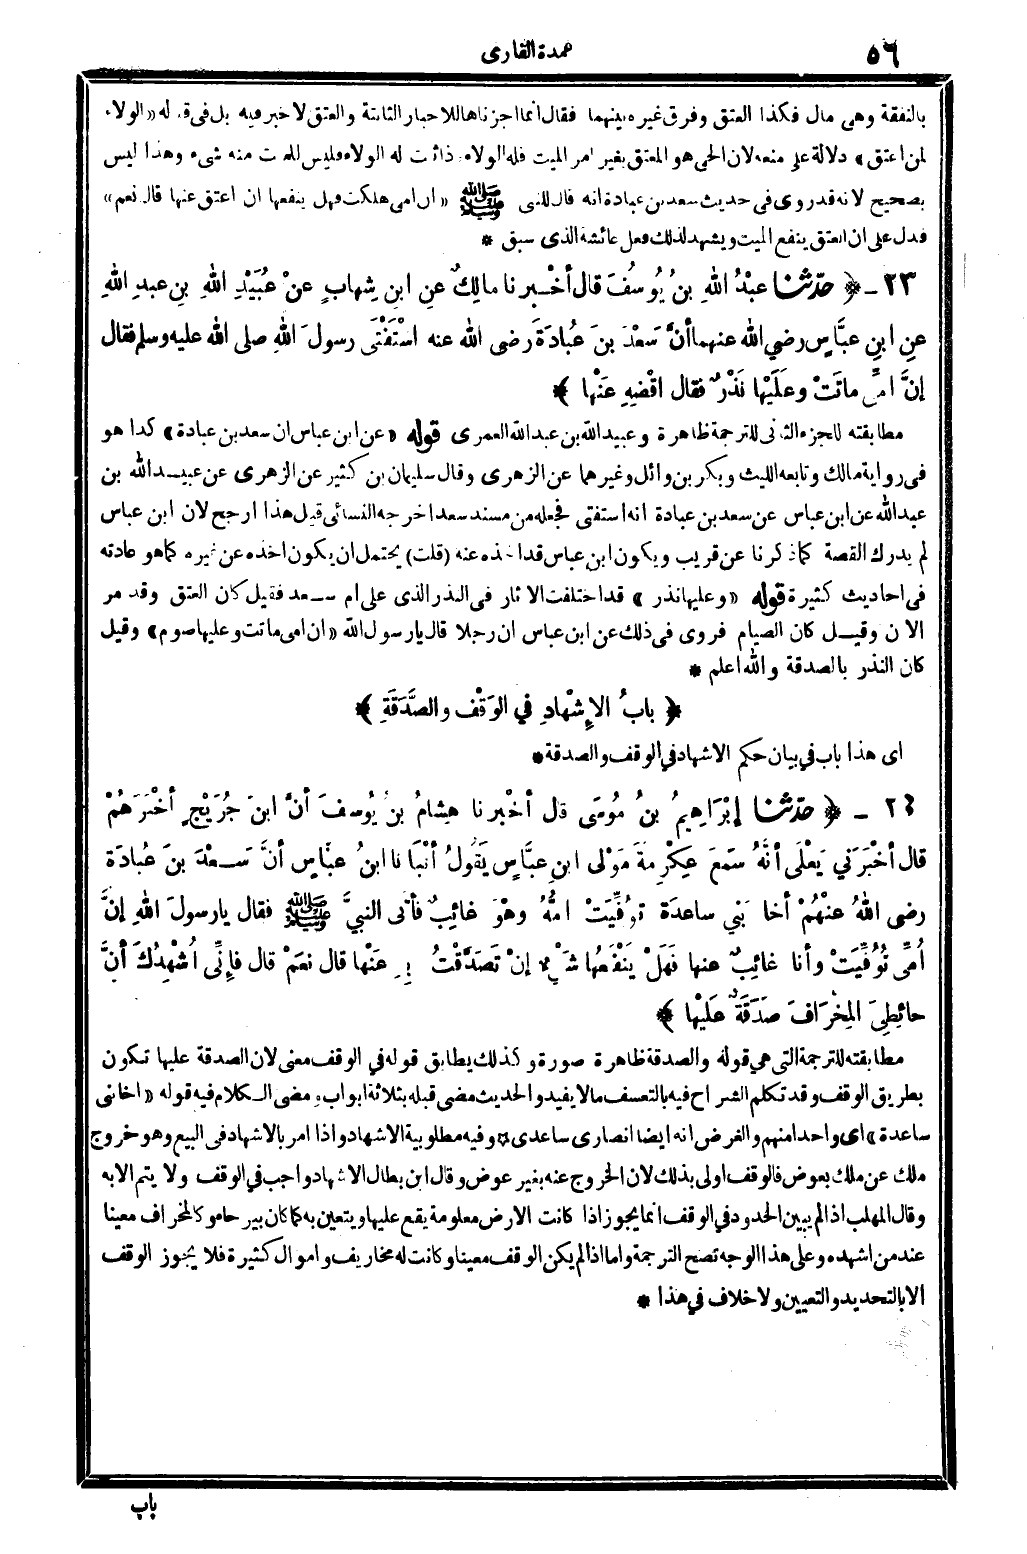 ٥٦
عمدة القارى
بالنفقة وهى مال فكذا العتق وفرق غيره بينهما فقال انما اجزناها للاخبار الثابتة والعتق لا خبر فيه بل فى قوله «الولاء
لمن اعتق» دلالة على منعه لان الحى هو المعتق بغير امر الميت فله الولاء فاذا ثبت له الولاء فليس للميت منه شىء وهذا ليس
بصحيح لانه قد روى فى حديث سعد بن عبادة انه قال للنبى ﷺ «ان امى هلكت فهل ينفعها ان اعتق عنها قال نعم»
فدل على ان العتق ينفع الميت ويشهد لذلك فعل عائشة الذى سبق *
٢٣ - ﴿ حدّثنا عبْدُ اللهِ بنُ يُوسُفَ قال أخْبرنا مالِكٌ عنِ ابنِ شِهابٍ عنْ عُبَيْدِ اللهِ بنِ عبدِ اللهِ
عنِ ابنِ عبَّاسٍ رضي الله عنهما أنَّ سَعْدَ بنَ عُبادَةَ رضى الله عنه اسْتَفْتَى رسولَ اللهِ صلى الله عليه وسلم فقال
إنَّ امِّى ماتَتْ وعلَيْها نَذْرٌ فقال اقْضِهِ عَنْها ﴾*
مطابقته للجزء الثانى للترجمة ظاهرة وعبيد الله بن عبد الله العمرى قوله «عن ابن عباس ان سعد بن عبادة» كذا هو
فى رواية مالك وتابعه الليث وبكر بن وائل وغيرهما عن الزهرى وقال سليمان بن كثير عن الزهرى عن عبيد الله بن
عبد الله عن ابن عباس عن سعد بن عبادة انه استفتى فجعله من مسند سعد اخرجه النسائى قيل هذا ارجح لان ابن عباس
لم يدرك القصة كما ذكرنا عن قريب ويكون ابن عباس قد اخذه عنه (قلت) يحتمل ان يكون اخذه عن غيره كما هو عادته
فى احاديث كثيرة قوله «وعليها نذر» قد اختلفت الاثار فى النذر الذى على ام سعد فقيل كان العتق وقد مر
الان وقيل كان الصيام فروى فى ذلك عن ابن عباس ان رجلا قال يا رسول الله «ان امى ماتت وعليها صوم» وقيل
كان النذر بالصدقة والله اعلم *
﴿ بابُ الإِشْهادِ في الوَقْفِ والصَّدَقَةِ ﴾*
اى هذا باب في بيان حكم الاشهاد في الوقف والصدقة *
٢٤ - ﴿ حدّثنا إبْرَاهِيمُ بنُ مُوسَى قال أخْبرنا هِشامُ بنُ يُوسفَ أنَّ ابنَ جُرَيْجٍ أخْبَرَهُمْ
قال أخْبَرَني يَعْلَى أنَّهُ سَمِعَ عِكْرِمةَ مَوْلى ابنِ عبَّاسٍ يَقُولُ أنْبَأنا ابنُ عبَّاسٍ أنَّ سَعْدَ بنَ عُبادَةَ
رضى اللهُ عنْهُمْ أخا بَني ساعدَةَ تُوُفِّيَتْ امُّهُ وهْوَ غائِبٌ فأتَى النبيَّ ﷺ فقال يارسولَ اللهِ إنَّ
أُمِّى تُوُفِّيَتْ وأنا غائِبٌ عنها فهَلْ يَنْفَعُها شَىْءٌ إنْ تَصَدَّقْتُ بِهِ عنْها قال نعَمْ قال فإنِّى اُشْهِدُكَ أنَّ
حائِطِىَ المِخْرَافَ صَدَقَةٌ عَلَيْها ﴾*
مطابقته للترجمة التى هى قوله والصدقة ظاهرة صورة وكذلك يطابق قوله في الوقف معنى لان الصدقة عليها تكون
بطريق الوقف وقد تكلم الشراح فيه بالتعسف مالا يفيد والحديث مضى قبله بثلاثة ابواب ومضى الكلام فيه قوله «اخا بنى
ساعدة» اى واحدا منهم والغرض انه ايضا انصارى ساعدى * وفيه مطلوبية الاشهاد واذا امر بالاشهاد فى البيع وهو خروج
ملك عن ملك بعوض فالوقف اولى بذلك لان الخروج عنه بغير عوض وقال ابن بطال الاشهاد واجب في الوقف ولا يتم الا به
وقال المهلب اذا لم يبين الحدود في الوقف انما يجوز اذا كانت الارض معلومة يقع عليها ويتعين به كما كان بير حا وكالمخراف معينا
عند من اشهده وعلى هذا الوجه تصح الترجمة واما اذا لم يكن الوقف معينا وكانت له مخاريف واموال كثيرة فلا يجوز الوقف
الا بالتحديد والتعيين ولا خلاف في هذا *
باب